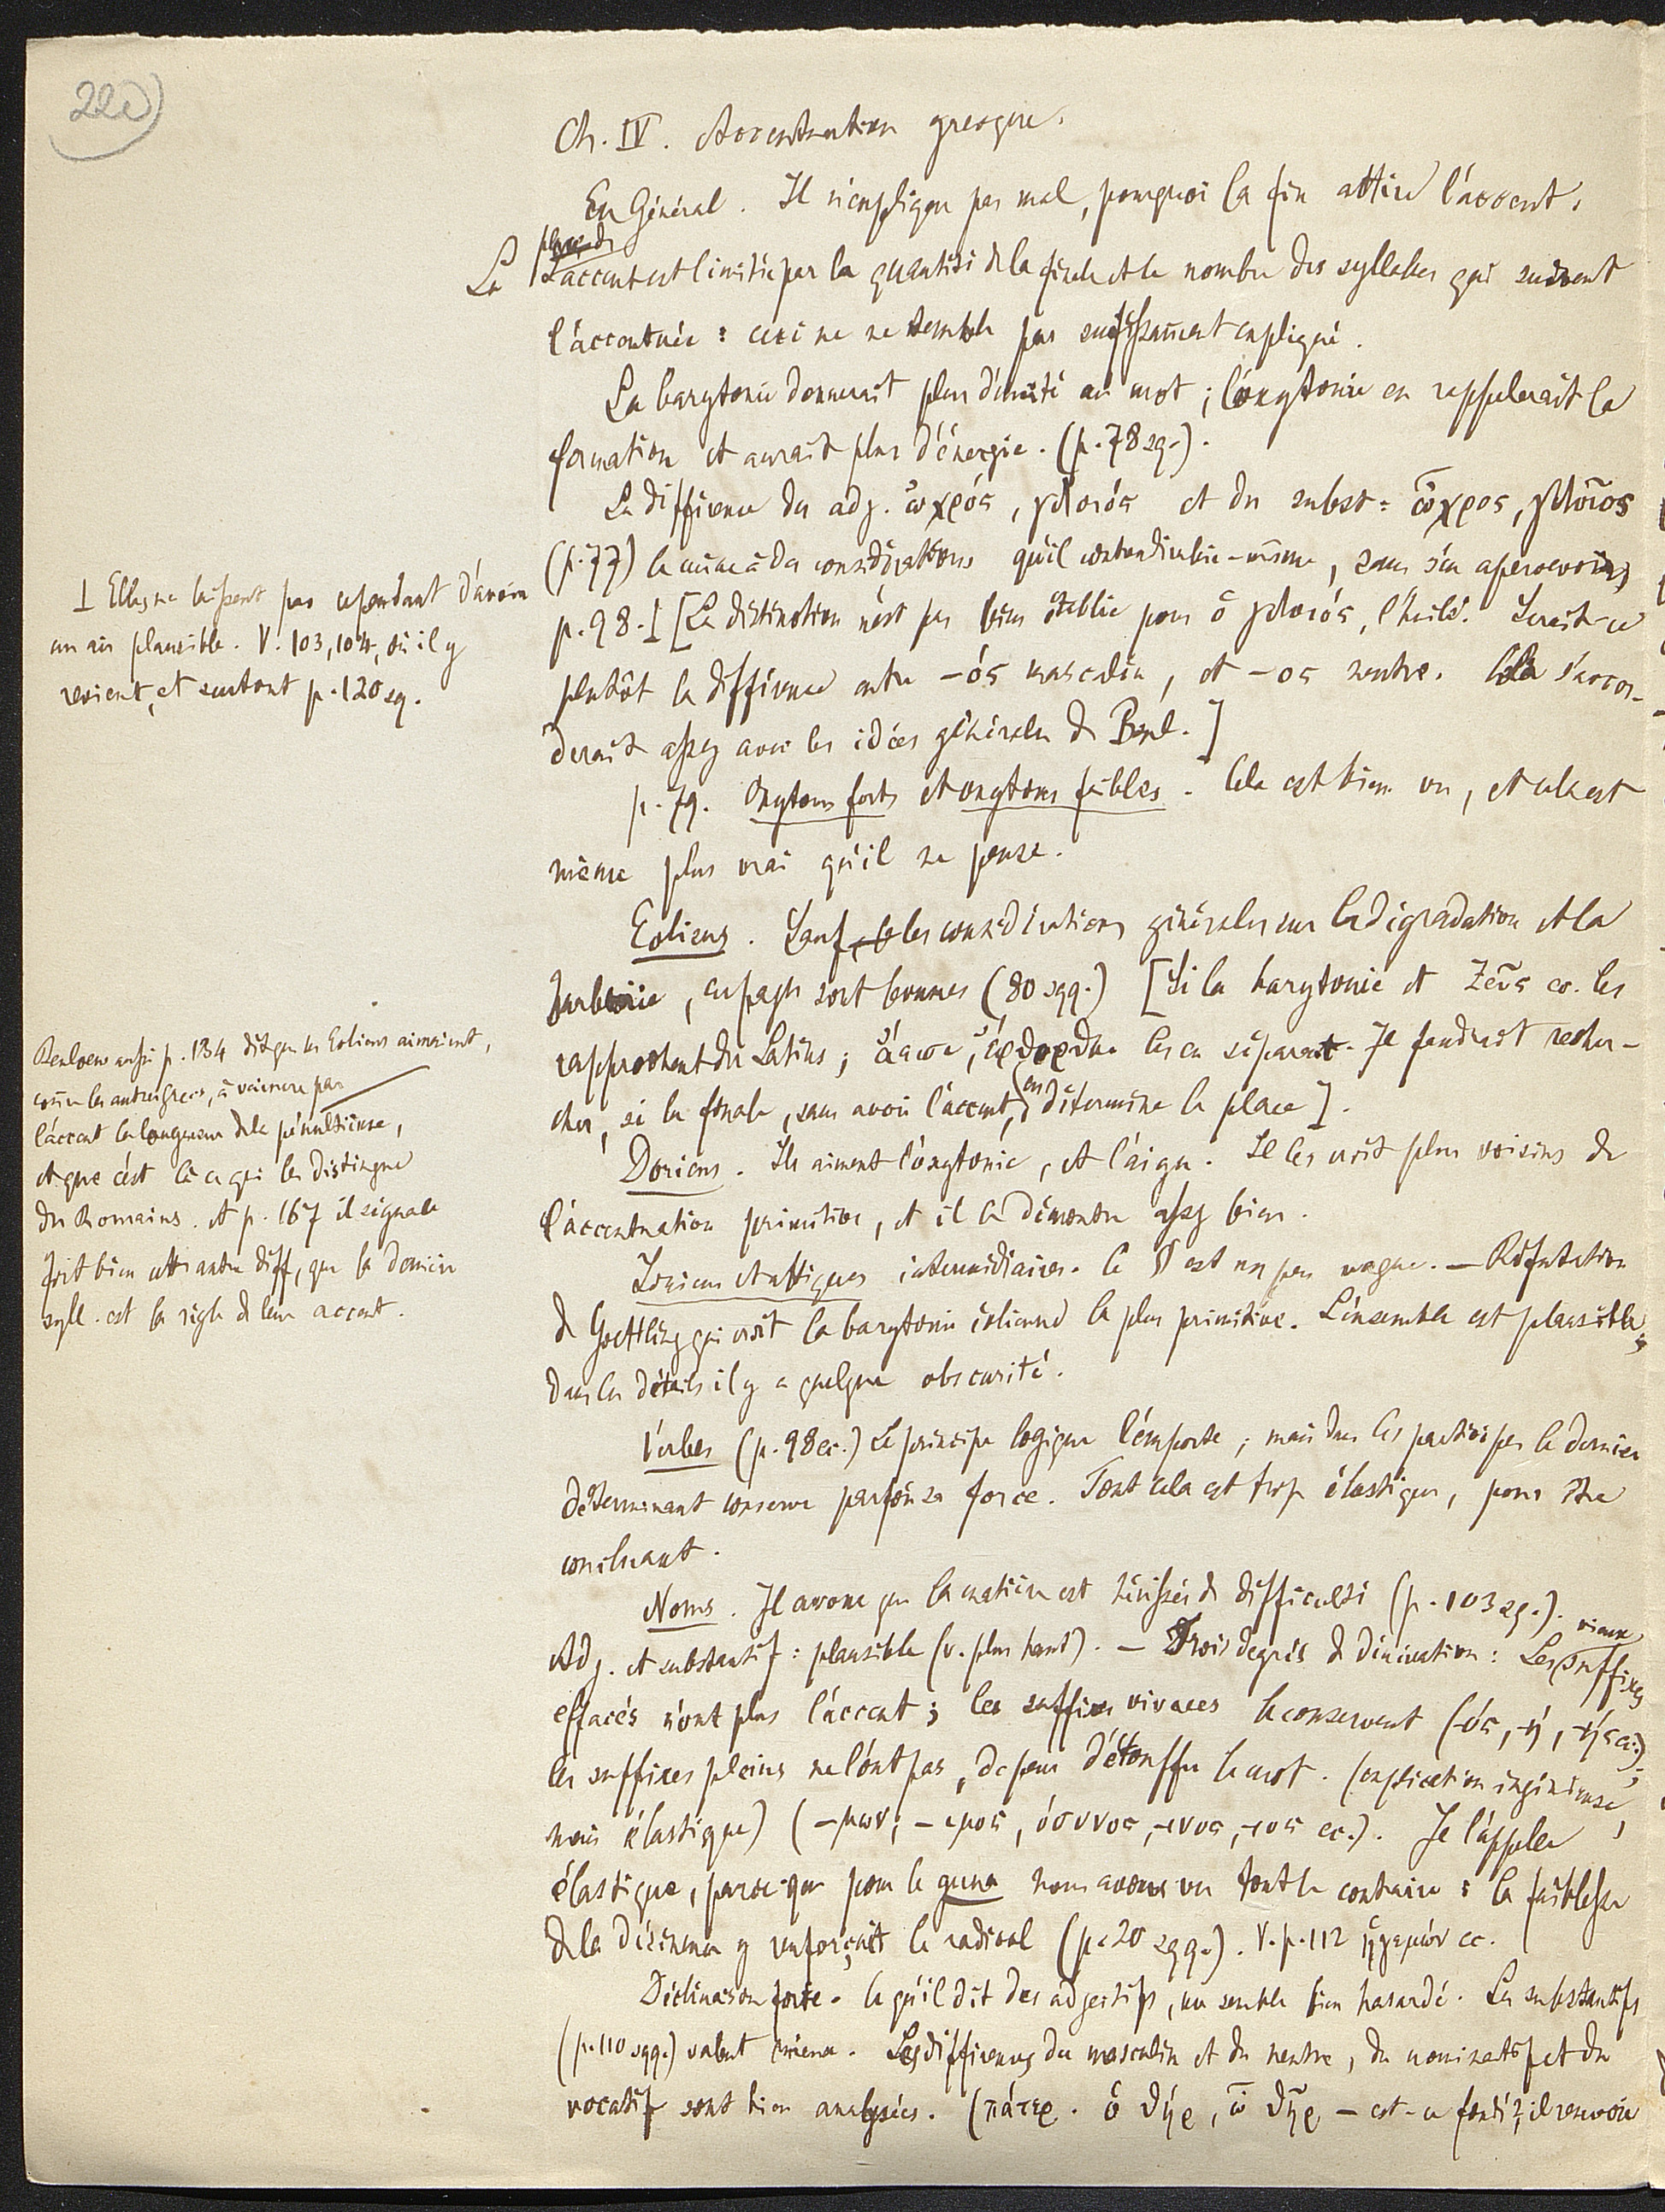 22c)
Ch. IV. Accentuation grecque.
En Général. Il n'explique pas mal, pourquoi la fin attire l'accent.
La place de l'accent est limitée par la quantité de la finale et le nombre des syllabes qui suivent
l'accentuée : ceci ne me semble pas suffisamment expliqué.
La barytonie donnerait plus d'unité au mot ; l'oxytonie en rappelerait la
formation et aurait plus d'énergie. (p. 78 sq.).
La différence des adj. ὠχρός, γλοιός et du subst: ὦχρος, γλοῖος
(p. 77) le mène à des considérations qu'il contredira lui-même, sans s'en apercevoir,
p. 98. ⊥ [La distinction n'est pas bien établie pour ὁ γλοιός, l'huile. Serait-ce
plutôt la différence entre -ός masculin, et -ος neutre. Cela s'accor-
derait assez avec les idées générales de Benl.]
p. 79. Oxytons forts et oxytons faibles. Cela est bien vu, et cela est
même plus vrai qu'il ne pense.
Eoliens. Sauf les considérations générales sur la dégradation et la
barbarie, ces pages sont bonnes (80 sqq.) [Si la barytonie et Ζεῦς cc. les
rapprochent des Latins ; les en séparent. Il faudrait recher-
cher, si la finale, sans avoir l'accent, en détermine la place].
Doriens. Ils aiment l'oxytonie, et l'aigu. Il les croit plus voisins de
l'accentuation primitive, et il le démontre assez bien.
Ioniens et attiques intermédiaires. Ce § est un peu vague. — Réfutation
de Goettling qui croit la barytonie éolienne la plus primitive. L'ensemble est plausible,
dans les détails il y a quelque obscurité.
Verbes (p. 98 cc.) Le principe logique l'emporte ; mais dans les participes le dernier
déterminant conserve parfois sa force. Tout cela est trop élastique, pour être
concluant.
Noms. Il avoue que la matière est hérissée de difficultés (p. 103 sq.).
Adj. et substantif : plausible (v. plus haut). — Trois degrés de dérivation : Les vieux suffixes
effacés n'ont plus l'accent ; les suffixes vivaces le conservent (-ός, -ή, -ής cc.),
les suffixes pleins ne l'ont pas, de peur d'étouffer le mot. (explication ingénieuse,
mais élastique) (-μων, -ιμος, όσυνος, -ινος, -ιος cc.). Je l'appelle
élastique, parce que pour le guna nous avons vu tout le contraire : la faiblesse
de la désinence y renforçait le radical (p. 20 sqq.). V. p. 112 ἡγεμών cc.
Déclinaison forte. Ce qu'il dit des adjectifs, me semble bien hasardé. Les substantifs
(p. 110 sqq.) valent mieux. Les différences du masculin et du neutre, du nominatif et du
vocatif sont bien analysées. (πάτερ. ὁ θήρ, ὦ θῆρ — est-ce fondé ? il renvoie
⊥ Elles ne laissent pas cependant d'avoir
un air plausible. V. 103, 104, où il y
revient, et surtout p. 120 sq.
Benloew aussi p. 134 dit que les Eoliens aimaient,
comme les autres Grecs, à vaincre par
l'accent la longueur de la pénultième,
et que c'est là ce qui les distingue
des Romains. et p. 167 il signale
fort bien cette autre diff, que la dernière
syll. est la règle de leur accent.